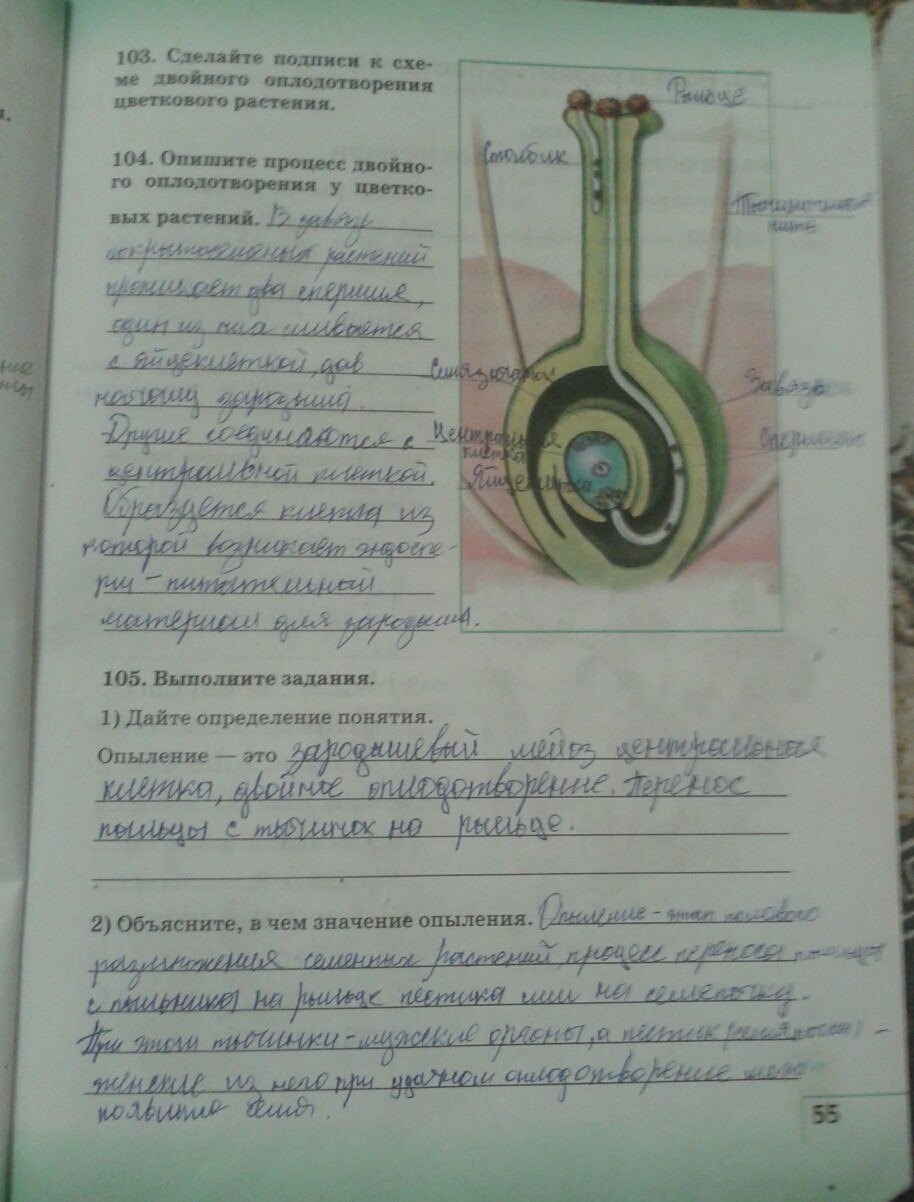 103. Сделайте подписи к схе-
ме двойного оплодотворения
цветкового растения.
104. Опишите процесс двойно-
го оплодотворения у цветко-
вых растений. В завязь
покрытосеменных растений
проникает два спермия,
один из них сливается
с яйцеклеткой, дав
начало зародышу.
Другие соединаются с
центральной клеткой.
Образуется клетка из
которой возникает эндоспе-
рм - питательный
материал для зародыша.
Рыльце
Столбик
Тычиночная
нить
Семязачаток
Завязь
Центральная
клетка
Спермии
Яйцеклетка
105. Выполните задания.
1) Дайте определение понятия.
Опыление — это зародышевый мейоз центральная
клетка, двойное оплодотворение. Перенос
пыльцы с тычинок на рыльце.
2) Объясните, в чем значение опыления. Опыление - этап полового
размножения семенных растений, процесс переноса пыльцы
с пыльника на рыльце пестика или на семепочку.
При этом тычинки - мужские органы, а пестик -
женские из него при удачном оплодотворение может
появится семя.
55